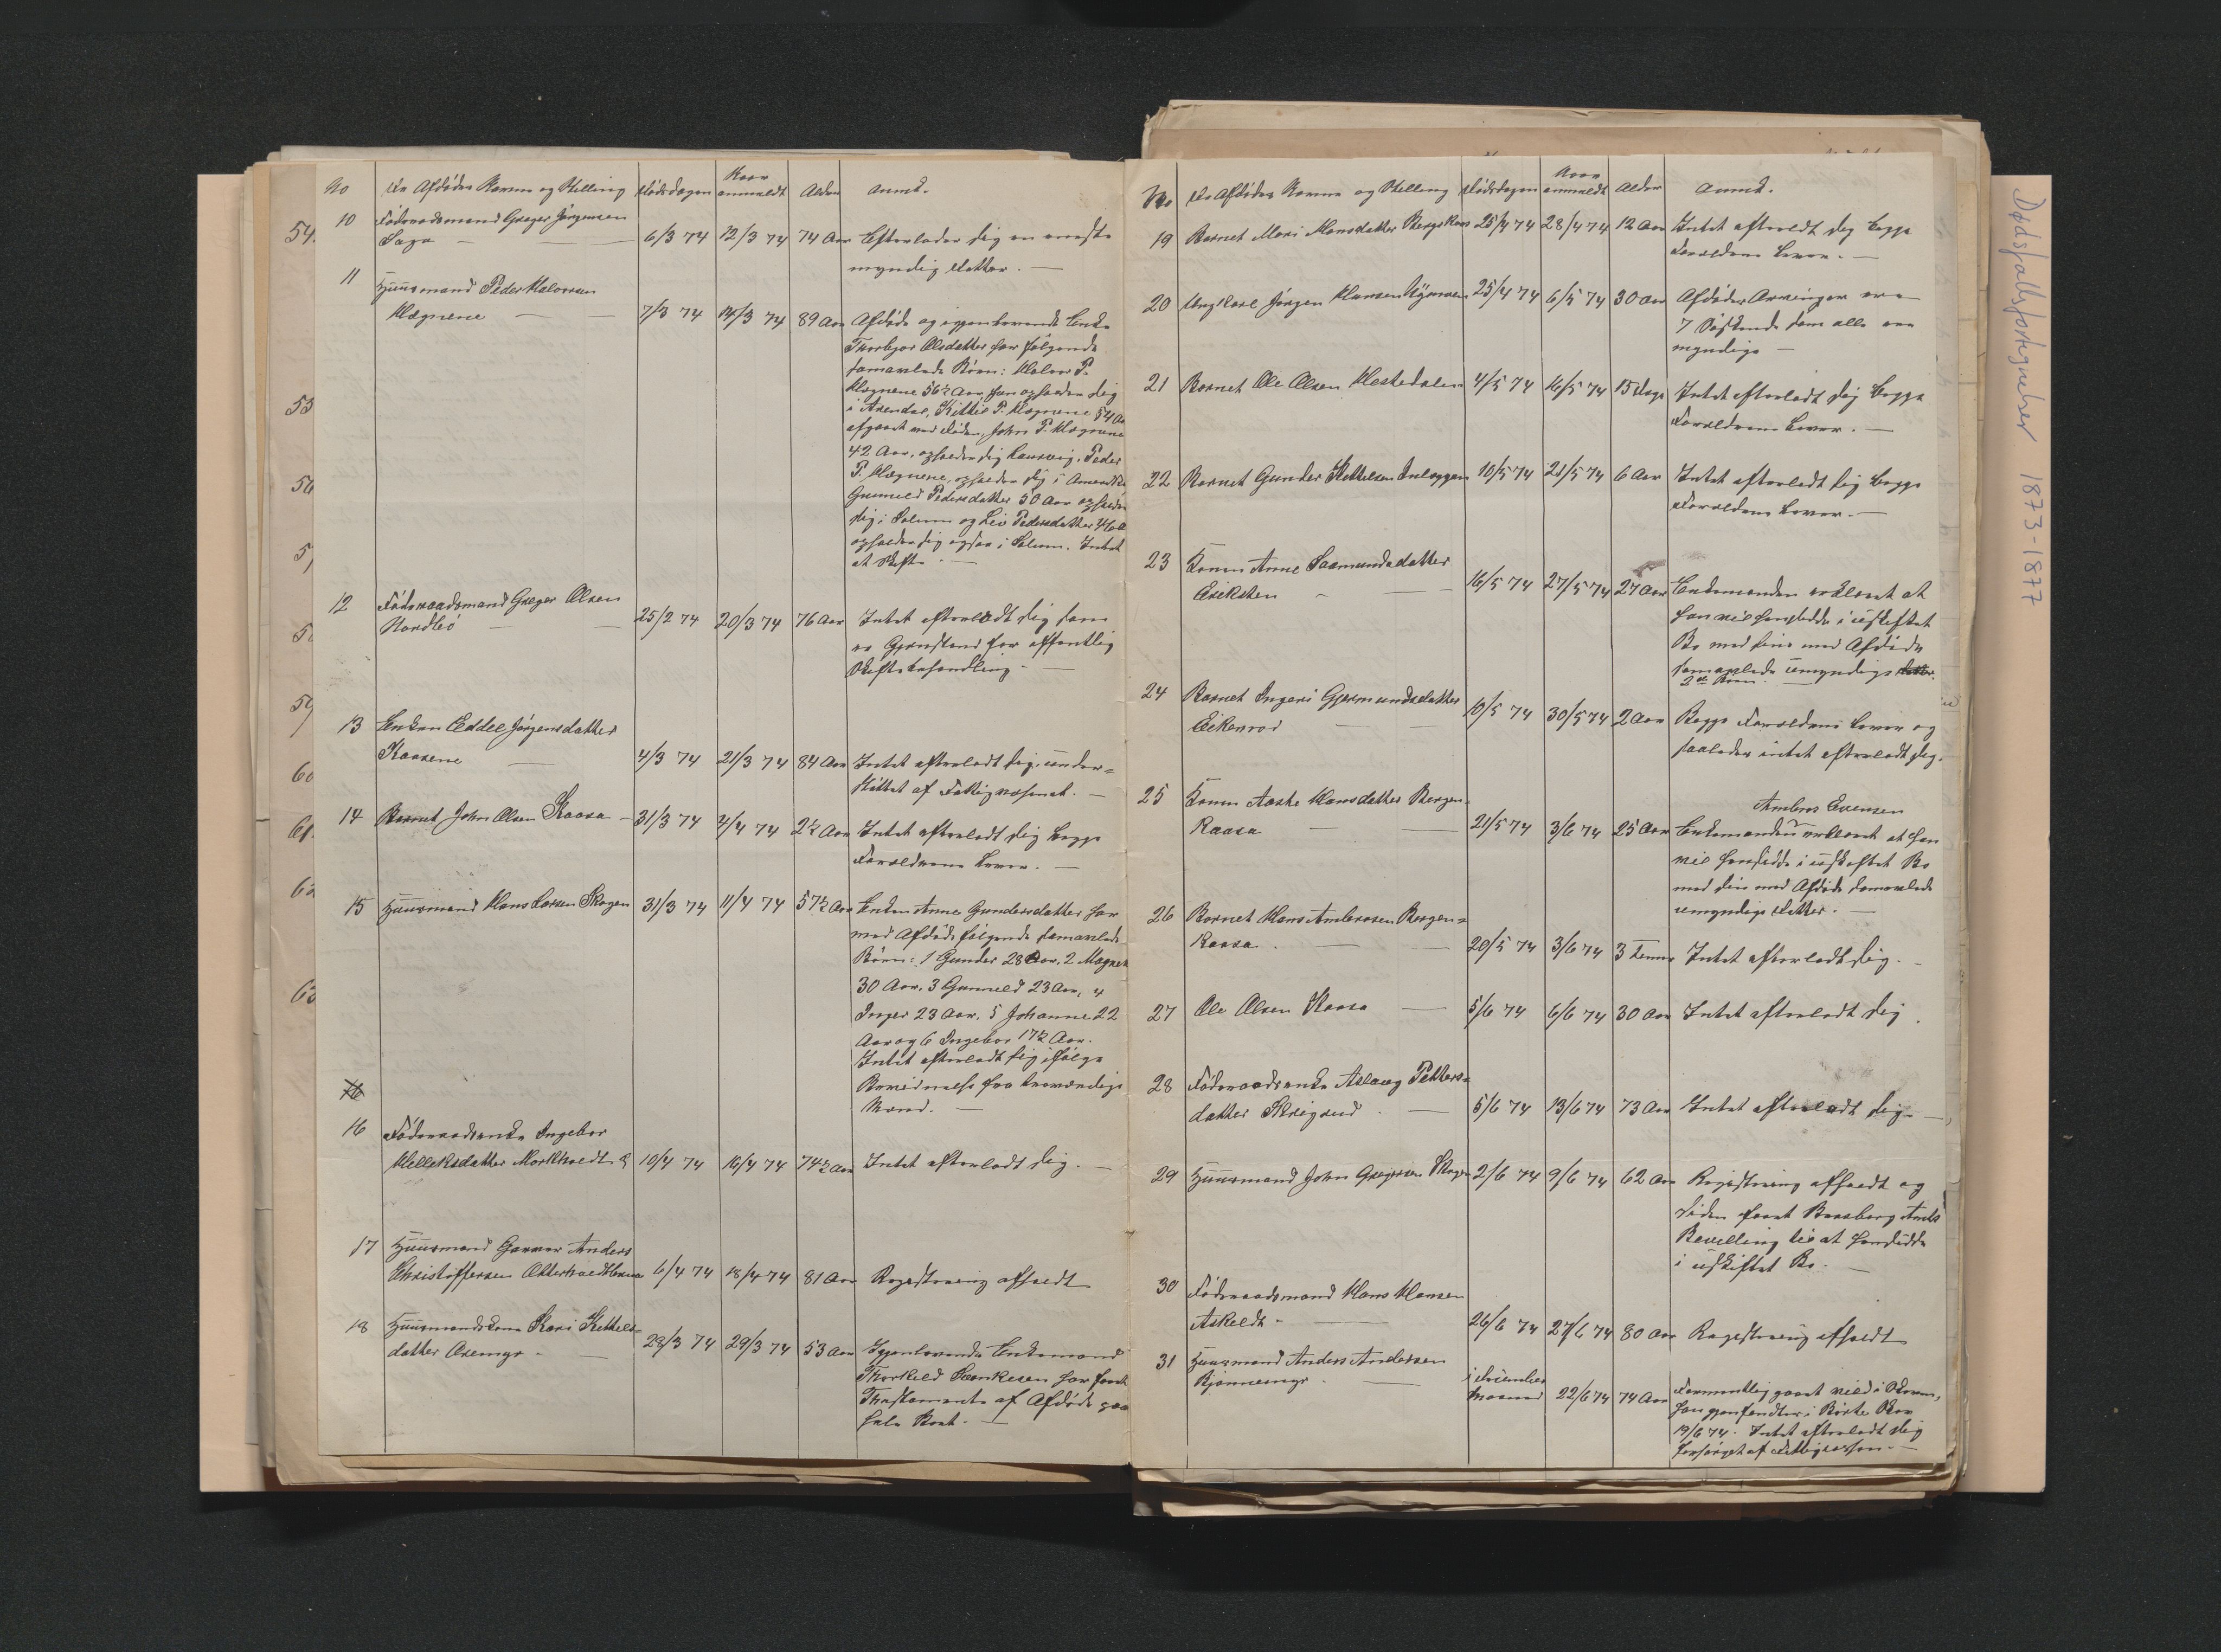 No De Afdødes Navne og Stilling Dødsdagen Naar anmældt Alder Anmk.
10 Føderaadsmand Greger Jørgensen
Saga 6/3 74 12/3 74 74 Aar Efterlader sig en eneste
myndig Datter.
11 Huusmand Peder Halvorsen
Høgnene 7/3 74 14/3 74 89 Aar Afdøde og igjenlevende Enke
Thorbjør Olsdatter har følgende
sammavlede Børn: Halvor P.
Høgnene 56½ Aar, han opholder sig
i Arendal, Kittil P. Høgnene 54 Aar
afgaaet ved Døden, John P. Høgnene
42 Aar, opholder sig Laurvig, Peder
P. Høgnene, opholder sig i Amerika
Gunnild Pedersdatter 50 Aar opholder
sig i Solum og Liv Pedersdatter 46 A
opholder sig ogsaa i Solum. Intet
at Skifte.
12 Føderaadsmand Greger Olsen
Nordbø 25/2 74 20/3 74 76 Aar Intet efterladt sig som
er Gjenstand for offentlig
Skiftebehandling
13 Enken Eddel Jørgensdatter
Kaasene 4/3 74 21/3 74 84 Aar Intet efterladt sig, under=
støttet af Fattigvæsenet.
14 Barnet John Olsen Kaasa 31/3 74 4/4 74 2½ Aar Intet efterladt sig begge
Forældrene lever.
15 Huusmand Hans Larsen Skogen 31/3 74 11/4 74 57½ Aar Enken Anne Gundersdatter har
med Afdøde følgende sammavlede
Børn: 1 Gunder 28 Aar, 2 Magnil
30 Aar, 3 Gunnild 23 Aar, 4
Inger 23 Aar, 5 Johanne 22
Aar og 6 Ingebor 17½ Aar.
Intet efterladt sig ifølge
Bevidnelse fra troværdige
Mænd.
16
16 Føderaadsenke Ingebor
Helleksdatter Morkhvedt 10/4 74 16/4 74 74½ Aar Intet efterladt sig.
17 Huusmand Gamner Anders
Christoffersen Otterholdt 6/4 74 18/4 74 81 Aar Registrering afholdt
18 Huusmandskone Kari Kittils=
datter Oremyr 28/3 74 29/3 74 53 Aar Igjenlevende Enkemand
Thorkild har faaet
Thestamente af Afdøde paa
hele Boet.
54.
55
56
57
58
59
60
61.
62
63
No De Afdødes Navne og Stilling Dødsdagen Naar anmældt Alder Anmk.
19 Barnet Mari Hansdatter Bergskaas 25/4 74 28/4 74 12 Aar Intet efterladt sig begge
Forældrene lever.
20 Ungkarl Jørgen Hansen 25/4 74 6/5 74 30 Aar Afdødes Arvinger ere
7 Søskende som alle ere
myndige
21 Barnet Ole Olsen Hestedalen 4/5 74 16/5 74 15 Dage Intet efterladt sig begge
Forældrene lever.
22 Barnet Gunder Kittelsen Inleggen 10/5 74 21/5 74 6 Aar Intet efterladt sig begge
Forældrene lever.
23 Konen Anne Saamundsdatter
Eriksten 16/5 74 27/5 74 27 Aar Enkemanden erklæret at
han vil hensidde i uskiftet
Bo med sine med Afdøde
sammavlede umyndige
2de Børn.
24 Barnet Ingeri Gjermundsdatter
Eekerød 10/5 74 30/5 74 2 Aar Begge Forældrene lever og
saaledes intet efterladt sig.
25 Konen Aaste Hansdatter Bergen=
Kaasa 21/5 74 3/6 74 25 Aar Enkemanden Ambros Evensen erklæret at han
vil hensidde i uskiftet Bo
med sin med Afdøde sammavlede
umyndige Datter.
26 Barnet Hans Ambrosen Bergen=
Kaasa 20/5 74 3/6 74 3 Timer Intet efterladt sig.
27 Ole Olsen Kaasa 5/6 74 6/6 74 30 Aar Intet efterladt sig.
28 Føderaadsenke Aslaug Petters=
datter 5/6 74 13/6 74 73 Aar Intet efterladt sig
29 Huusmand John Gregersen Skogen 2/6 74 9/6 74 62 Aar Registrering afholdt og
siden faaet Bratsberg Amts
Bevilling til at hensidde
i uskiftet Bo.
30 Føderaadsmand Hans Hansen
Askeldt 26/6 74 27/6 74 80 Aar Registrering afholdt
31 Huusmand Anders Andersen
Bjønnemyr i December Maaned 22/6 74 74 Aar Formentlig gaaet vild i Skoven,
han gjenfandtes i Børte Skov
19/6 74. Intet efterladt sig
forsørget af Fattigkassen.
Dødsfallsfortegnelser 1873-1877